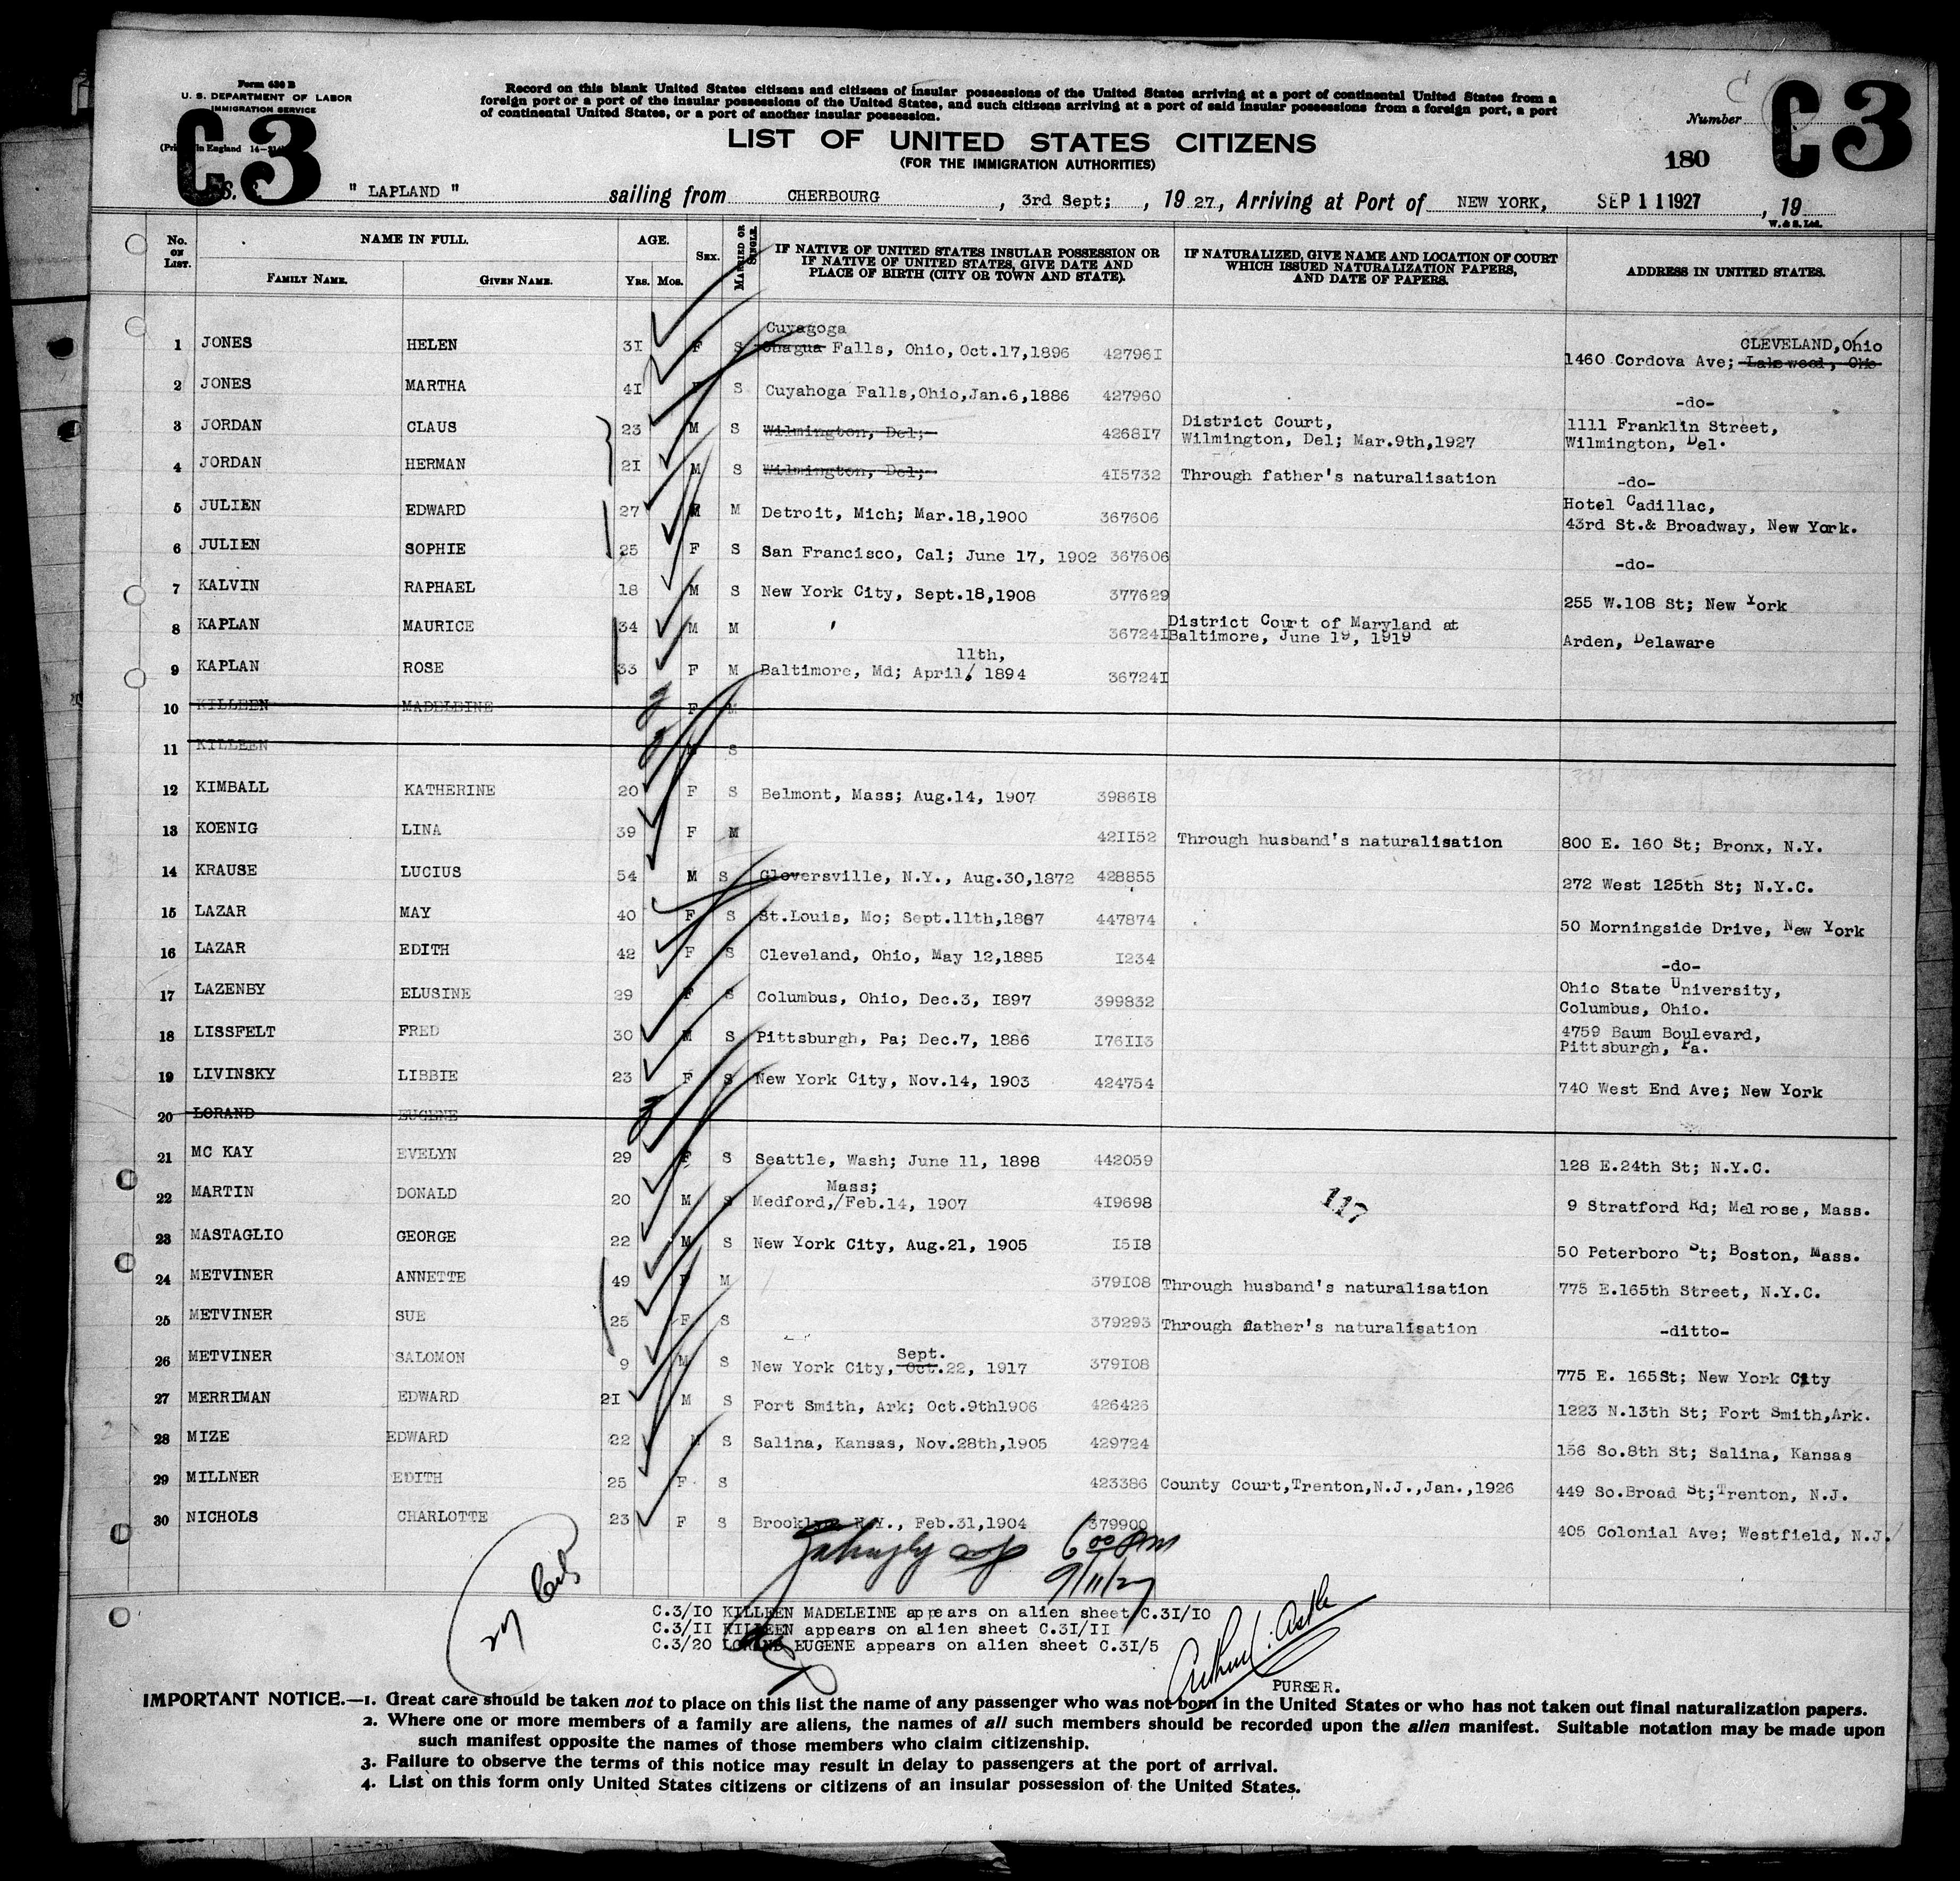 Form 630 B
U. S. DEPARTMENT OF LABOR
IMMIGRATION SERVICE
C3
in England 14—
Record on this blank United States citizens and citizens of insular possessions of the United States arriving at a port of continental United States from a
foreign port or a port of the insular possessions of the United States, and such citizens arriving at a port of said insular possessions from a foreign port, a port
of continental United States, or a port of another insular possession.
LIST OF UNITED STATES CITIZENS
(FOR THE IMMIGRATION AUTHORITIES)
Number
C3
180
S. " LAPLAND " sailing from CHERBOURG , 3rd Sept; , 19 27, Arriving at Port of NEW YORK, SEP 11 1927 , 19
W. & S. Ltd.
No. ON LIST. NAME IN FULL. AGE. SEX. MARRIED OR SINGLE. IF NATIVE OF UNITED STATES INSULAR POSSESSION OR IF NATIVE OF UNITED STATES, GIVE DATE AND PLACE OF BIRTH (CITY OR TOWN AND STATE). IF NATURALIZED, GIVE NAME AND LOCATION OF COURT WHICH ISSUED NATURALIZATION PAPERS, AND DATE OF PAPERS. ADDRESS IN UNITED STATES.
FAMILY NAME. GIVEN NAME. YRS. MOS.
Cuyagoga CLEVELAND, Ohio
1 JONES HELEN 31 F S Chagua Falls, Ohio, Oct.17,1896 427961 1460 Cordova Ave; Lakewood, Ohio
2 JONES MARTHA 41 S Cuyahoga Falls,Ohio,Jan.6,1886 427960 -do-
3 JORDAN CLAUS 23 M S Wilmington, Del;- 426817 District Court, 1111 Franklin Street,
Wilmington, Del; Mar.9th,1927 Wilmington, Del.
4 JORDAN HERMAN 21 M S Wilmington, Del;- 415732 Through father's naturalisation -do-
5 JULIEN EDWARD 27 M M Detroit, Mich; Mar.18,1900 367606 Hotel Cadillac,
43rd St.& Broadway, New York.
6 JULIEN SOPHIE 25 F S San Francisco, Cal; June 17, 1902 367606 -do-
7 KALVIN RAPHAEL 18 M S New York City, Sept.18,1908 377629 255 W.108 St; New York
8 KAPLAN MAURICE 34 M M 367241 District Court of Maryland at
Baltimore, June 19, 1919 Arden, Delaware
11th,
9 KAPLAN ROSE 33 F M Baltimore, Md; April/ 1894 367241
10 KILLEEN MADELEINE F M
11 KILLEEN S
12 KIMBALL KATHERINE 20 F S Belmont, Mass; Aug.14, 1907 398618
13 KOENIG LINA 39 F M 421152 Through husband's naturalisation 800 E. 160 St; Bronx, N.Y.
14 KRAUSE LUCIUS 54 M S Gloversville, N.Y., Aug.30,1872 428855 272 West 125th St; N.Y.C.
15 LAZAR MAY 40 F S St.Louis, Mo; Sept.11th,1887 447874 50 Morningside Drive, New York
16 LAZAR EDITH 42 F S Cleveland, Ohio, May 12,1885 1234 -do-
17 LAZENBY ELUSINE 29 F S Columbus, Ohio, Dec.3, 1897 399832 Ohio State University,
Columbus, Ohio.
18 LISSFELT FRED 30 M S Pittsburgh, Pa; Dec.7, 1886 176113 4759 Baum Boulevard,
Pittsburgh, Pa.
19 LIVINSKY LIBBIE 23 F S New York City, Nov.14, 1903 424754 740 West End Ave; New York
20 LORAND EUGENE
21 MC KAY EVELYN 29 F S Seattle, Wash; June 11, 1898 442059 128 E.24th St; N.Y.C.
Mass;
22 MARTIN DONALD 20 M S Medford,/Feb.14, 1907 419698 117 9 Stratford Rd; Melrose, Mass.
23 MASTAGLIO GEORGE 22 M S New York City, Aug.21, 1905 1518 50 Peterboro St; Boston, Mass.
24 METVINER ANNETTE 49 F M 379108 Through husband's naturalisation 775 E.165th Street, N.Y.C.
25 METVINER SUE 25 F S 379293 Through father's naturalisation -ditto-
Sept.
26 METVINER SALOMON 9 M S New York City, Oct.22, 1917 379108 775 E. 165St; New York City
27 MERRIMAN EDWARD 21 M S Fort Smith, Ark; Oct.9th1906 426426 1223 N.13th St; Fort Smith,Ark.
28 MIZE EDWARD 22 M S Salina, Kansas, Nov.28th,1905 429724 156 So.8th St; Salina, Kansas
29 MILLNER EDITH 25 F S 423386 County Court,Trenton,N.J.,Jan.,1926 449 So.Broad St;Trenton, N.J.
30 NICHOLS CHARLOTTE 23 F S Brooklyn N.Y., Feb.31,1904 379900 405 Colonial Ave; Westfield, N.J.
6 00 PM
9/11/27
C.3/10 KILLEEN MADELEINE appears on alien sheet C.31/10
C.3/11 KILLEEN appears on alien sheet C.31/11
C.3/20 LORAND EUGENE appears on alien sheet C.31/5
Arthur Astle
PURSER.
IMPORTANT NOTICE.—1. Great care should be taken not to place on this list the name of any passenger who was not born in the United States or who has not taken out final naturalization papers.
2. Where one or more members of a family are aliens, the names of all such members should be recorded upon the alien manifest. Suitable notation may be made upon
such manifest opposite the names of those members who claim citizenship.
3. Failure to observe the terms of this notice may result in delay to passengers at the port of arrival.
4. List on this form only United States citizens or citizens of an insular possession of the United States.